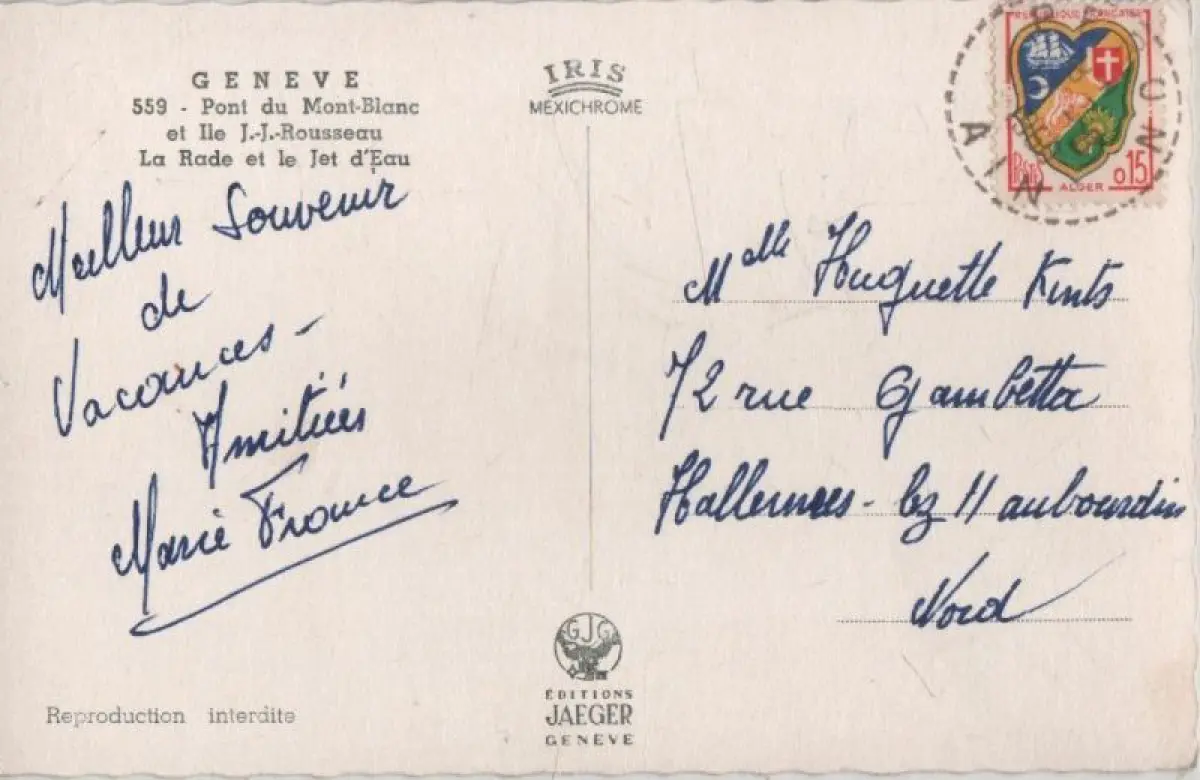 GENEVE
559 - Pont du Mont-Blanc
et Ile J.-J.-Rousseau
La Rade et le Jet d'Eau
Meilleur Souvenir
de
Vacances -
Amitiés
Marie France
Reproduction interdite
IRIS
MEXICHROME
GJG
ÉDITIONS
JAEGER
GENEVE
REPUBLIQUE FRANÇAISE
POSTES
0,15
ALGER
AIN
Melle Huguette Kints
72 rue Gambetta
Hallennes - lez Haubourdin
Nord